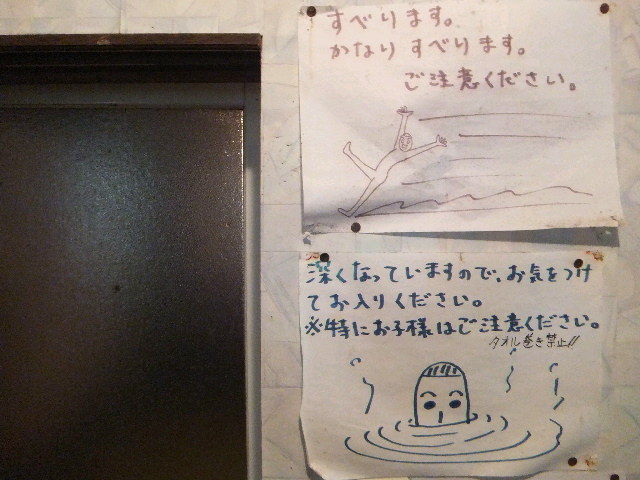 すべります。
かなりすべります。
ご注意ください。
深くなっていますので、お気をつけ
てお入りください。
※特にお子様はご注意ください。
タオル巻き禁止!!